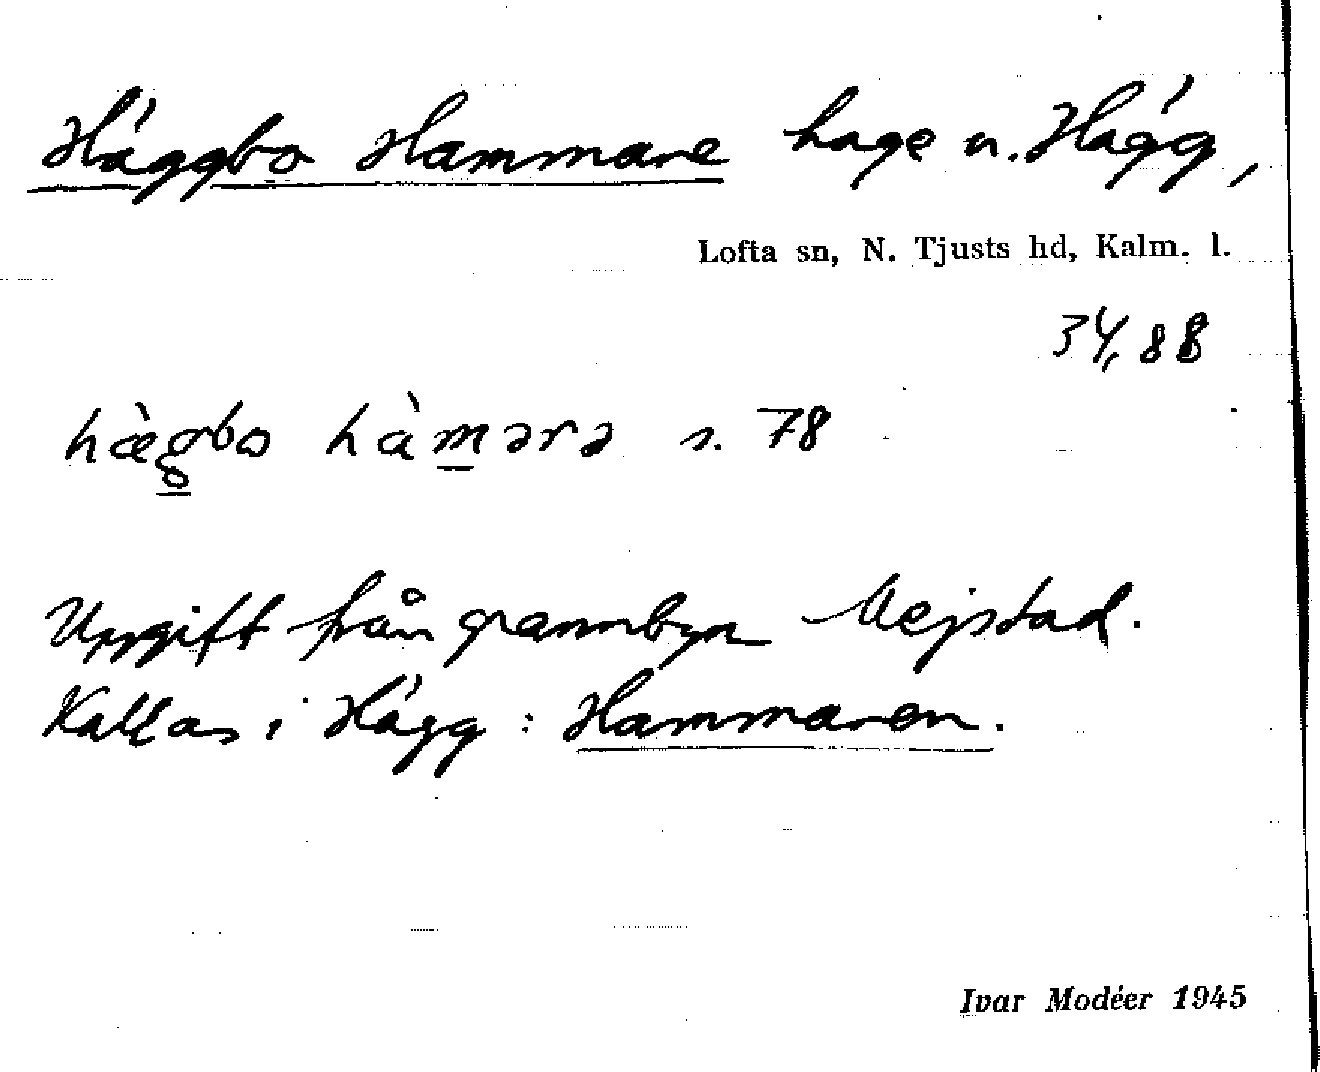 Häggbo Hammare hage u. Hägg,
Lofta sn, N. Tjusts hd, Kalm. l.
34,88
hæ̀gbo hàmərə s. 78
Uppgift från grannbyn Vejstad.
Kallas i Hägg: Hammaren.
Ivar Modéer 1945